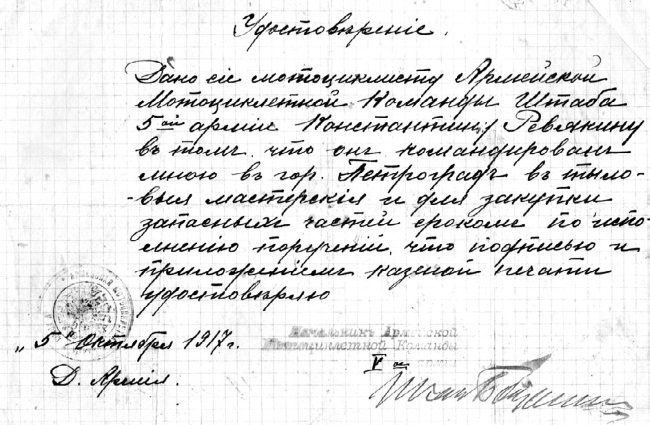 Удостовѣреніе.
Дано сіе мотоциклисту Армейской
Мотоциклетной Команды Штаба
5ой арміи Константину Ревякину
въ томъ, что онъ командированъ
мною въ гор. Петроградъ въ тыло-
-выя мастерскія и для закупки
запасныхъ частей срокомъ по испол-
нению порученій, что подписью и
приложеніемъ казеной печати
удостовѣряю
„5 Октября 1917 г.
Начальникъ Армейской
Мотоциклетной Команды
V ой арміи
Д. Армія.